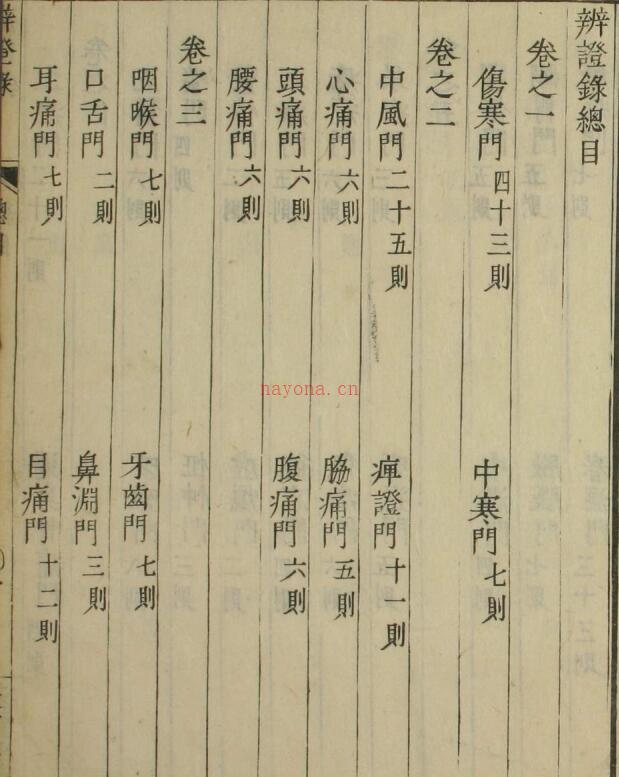 辨證錄總目
卷之一
傷寒門四十三則 中寒門七則
卷之二
中風門二十五則 痺證門十一則
心痛門六則 脇痛門五則
頭痛門六則 腹痛門六則
腰痛門六則
卷之三
咽喉門七則 牙齒門七則
口舌門二則 鼻淵門三則
耳痛門七則 目痛門十二則
辨證錄 總目
nayona.cn